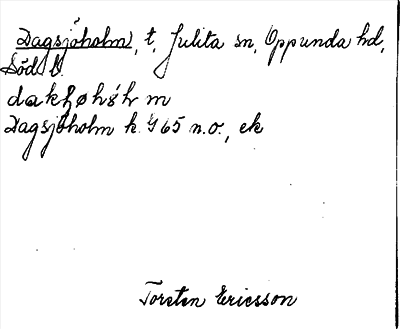 Dagsjöholm, t, Julita sn, Oppunda hd,
Söd l.
Dagsjöholm k. G 65 n.o., ek
Torsten Ericsson